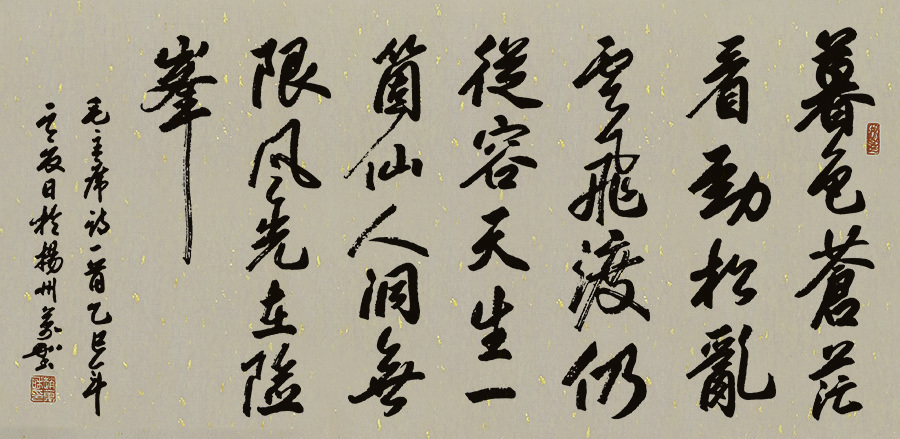 暮色蒼茫
看劲松亂
雲飛渡仍
從容天生一
箇仙人洞無
限风光在险
峯
毛主席诗一首乙巳年
日於揚州